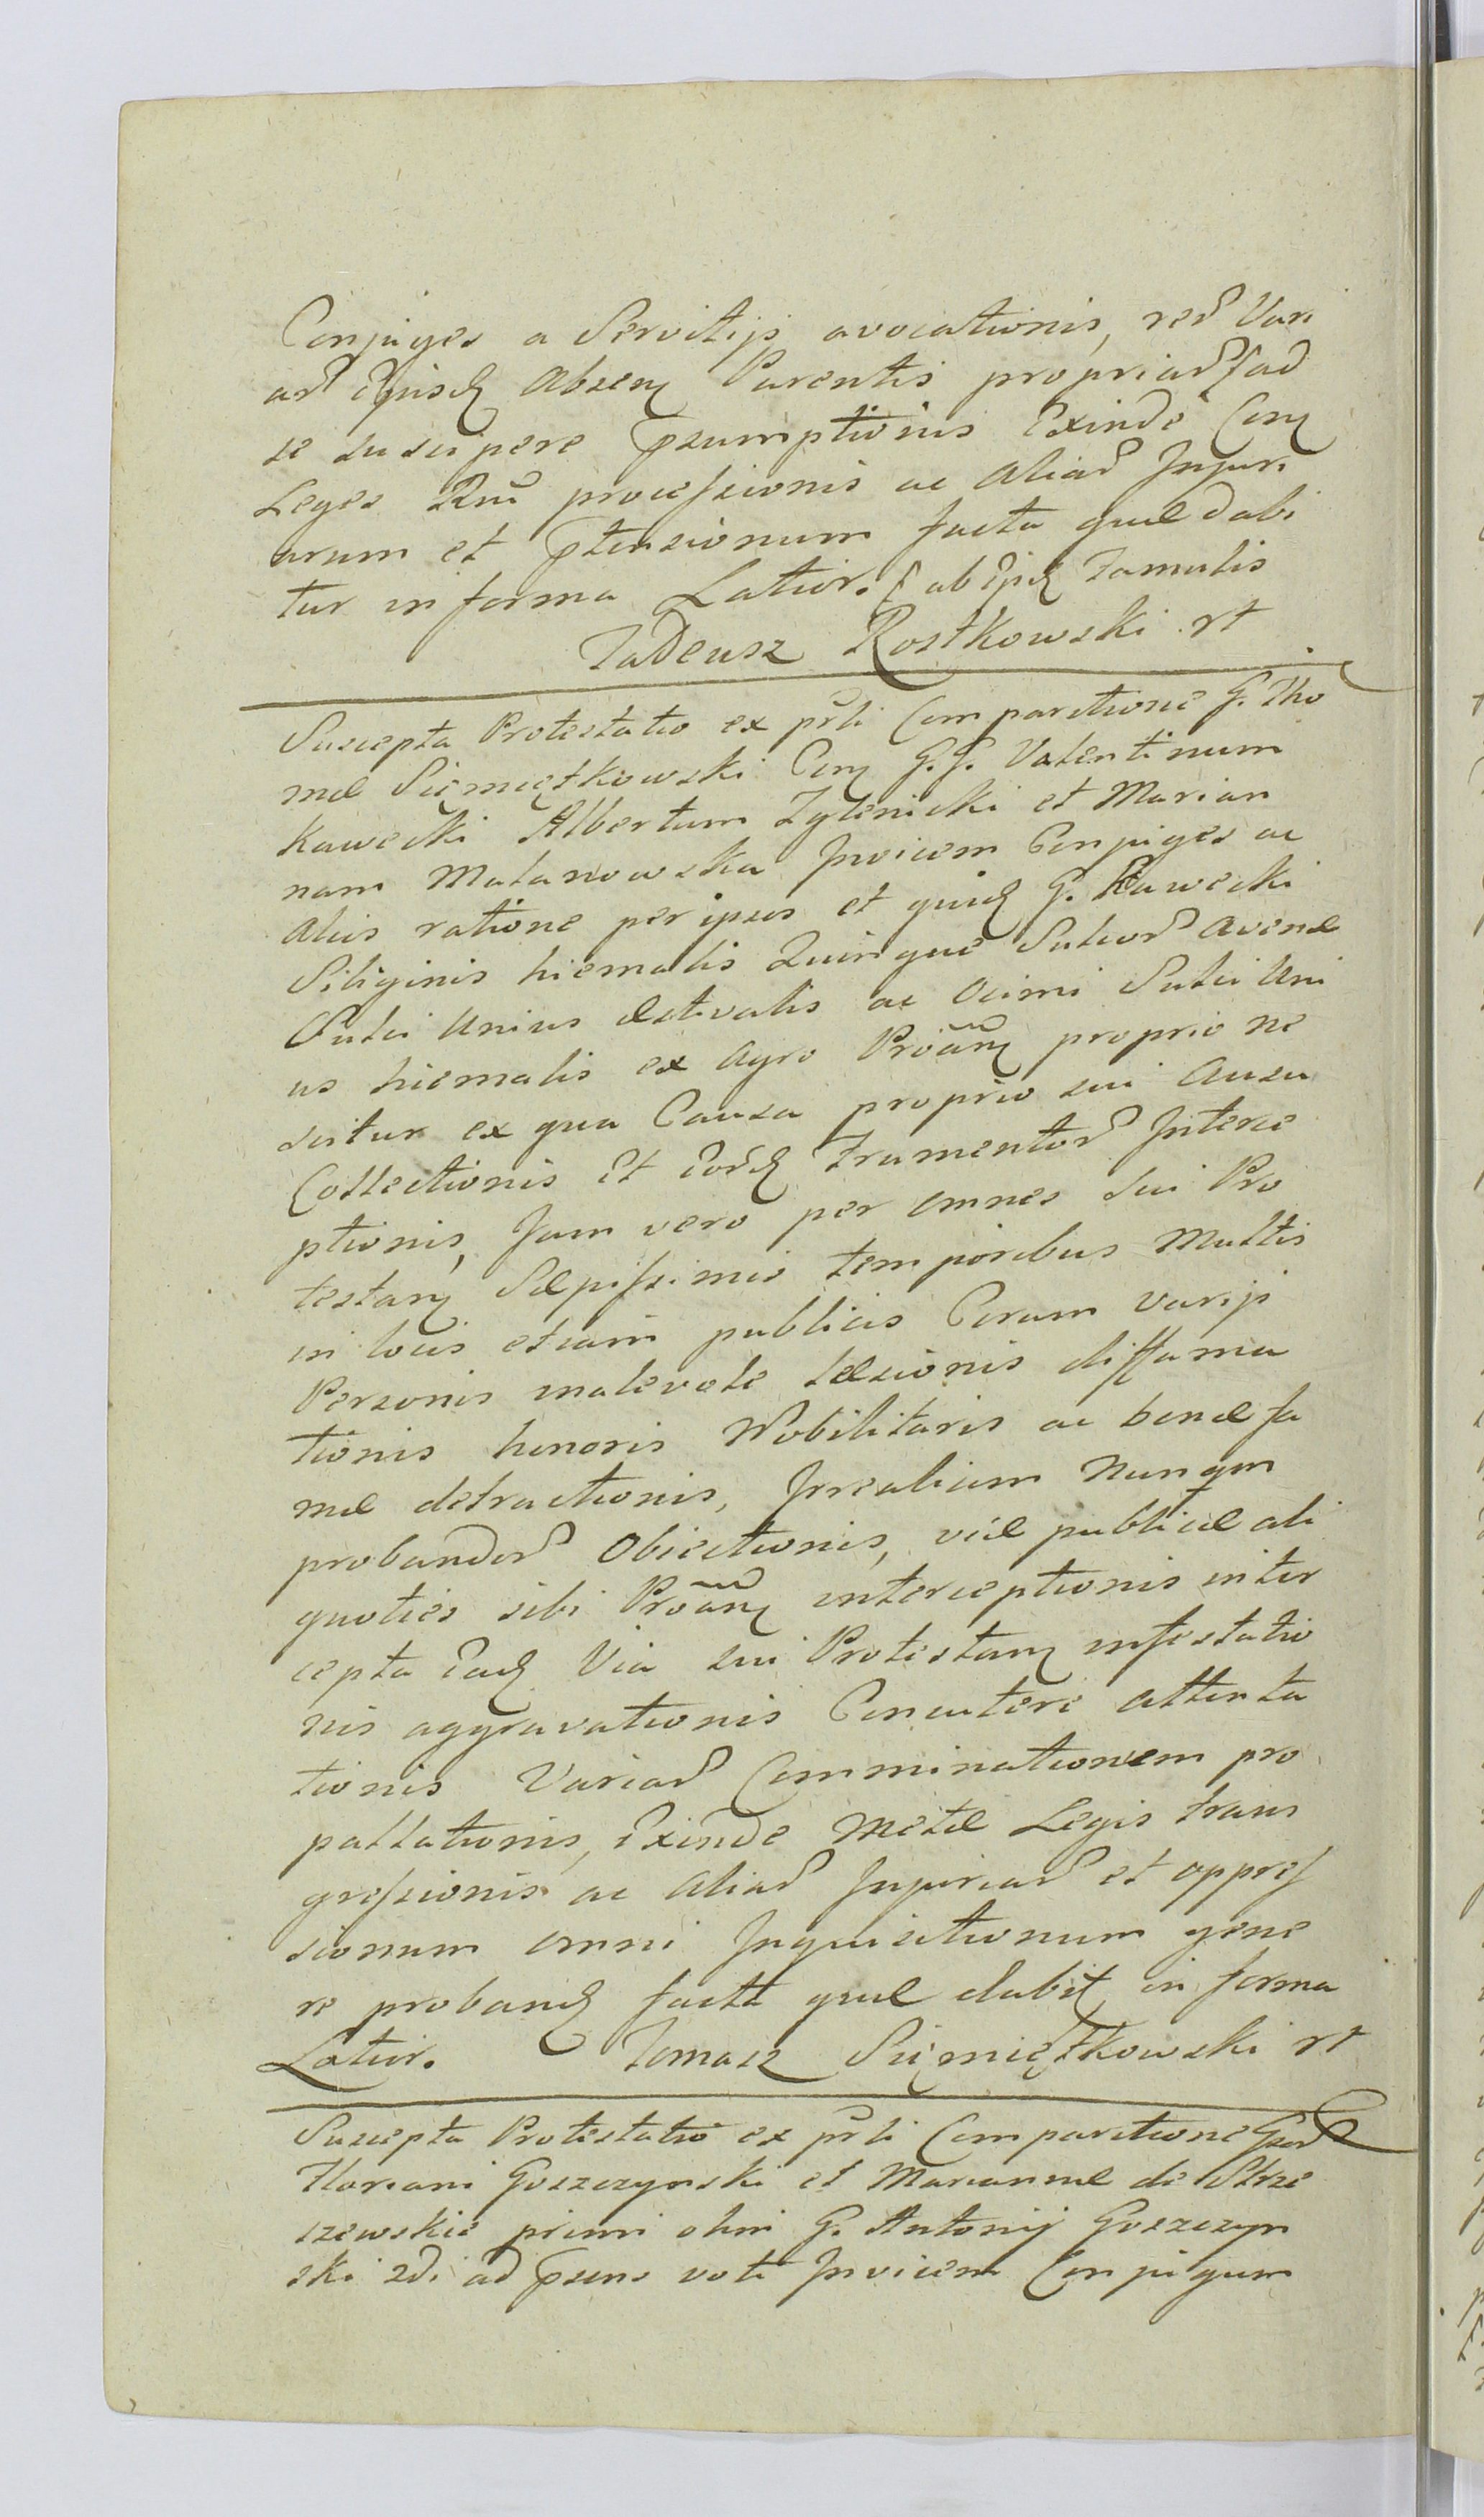 Conjuges a Servitijs avocationis, reru Vari
aru ejusd Absen Parentis propriaru ad
se suscipere psumptionis Exinde Con
Leges Rni processionis ac Aliar Injuri
arum et ptensionum facta quæ dabi
tur in forma Latior. ab Famulis
Tadeusz Rostkowski rt
Suscepta Protestatio ex prli Comparitione G. Tho
mæ Siemiętkowski Con G.G. Valentinum
Kawecki Albertum Zglenicki et Marian
nam Malanowska Invicem Conjuges ac
Aliis ratione per ipsos et quid G. Kawecki
Siliginis hiemalis Quinque Sulcor Avenæ
Sulci Unius æstivalis ac Ocimi Sulci Uni
us hiemalis ex Agro Proan proprio ne
scitur ex qua Causa proprio sui Ausu
Collectionis Et Eord Frumentor Interce
ptionis, Jam vero per omnes sui Pro
testan Sæpissimis temporibus Multis
in locis etiam publicis Coram varijs
Personis malevole læsionis diffama
tionis honoris Nobilitaris ac bonæ fa
mæ detractionis, Irrealium Nunqm
probandor Obiectionis, viæ publicæ ali
quoties sibi Proan interceptionis inter
cepta Ead Via sui Protestan infestatio
nis aggravationis Concutere attenta
tionis Variar Comminationem pro
pallationis, Exinde Metæ Legis trans
gressionis ac Aliar Injuriar et oppres
sionum omni Inquisitionum gene
re proband facta quæ dabit in forma
Latior. Tomasz Siemiętkowski rt
Suscepta Protestatio ex prli Comparitione Gsor
Floriani Goszczynski et Mariannæ de Strze
szewskie primi olim G. Antonij Goszczyn
ski 2di ad psens voti Invicem Conjugum